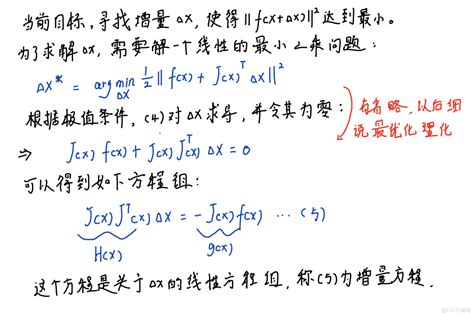 当前目标，寻找增量 Δx，使得 ||f(x+Δx)||² 达到最小。
为了求解Δx，需要解一个线性的最小二乘问题：
Δx* = arg min 1/2 || f(x) + J(x)ᵀ Δx ||²
Δx
根据极值条件，(4)对Δx求导，并令其为零：
有省略，以后细
说最优化理化
⇒ J(x) f(x) + J(x) Jᵀ(x) Δx = 0
可以得到如下方程组：
J(x) Jᵀ(x) Δx = -J(x) f(x) ··· (5)
H(x) g(x)
这个方程是关于Δx的线性方程组，称(5)为增量方程.